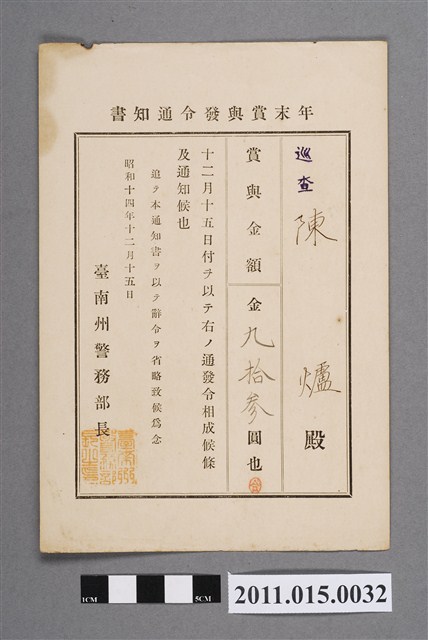 年末賞與發令通知書
巡查 陳爐 殿
賞與金額 金九拾參圓也
十二月十五日付ヲ以テ右ノ通發令相成候條
及通知候也
追テ本通知書ヲ以テ辭令ヲ省略致候爲念
昭和十四年十二月十五日
臺南州警務部長
1CM
5CM
2011.015.0032